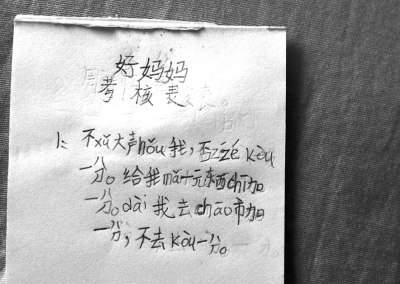 好妈妈
考核表
1: 不xǔ大声hǒu我,否zé kòu
一分。给我mǎi十元东西chī加
一分。dài我去chāo市加
一分,不去kòu一分。